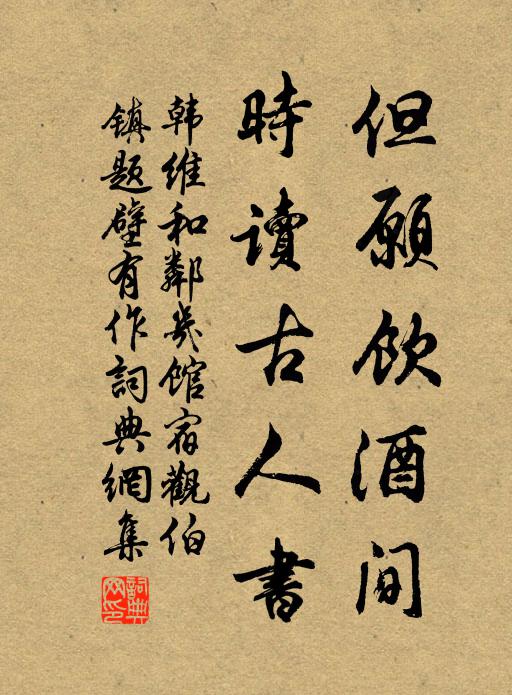 但願飲酒间
時讀古人書
韩維和鄰幾館宿觀伯
镇题壁有作詞典網集
詞典网印